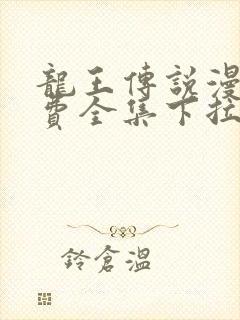 龍王傳說漫
費全集下拉
鈴倉溫